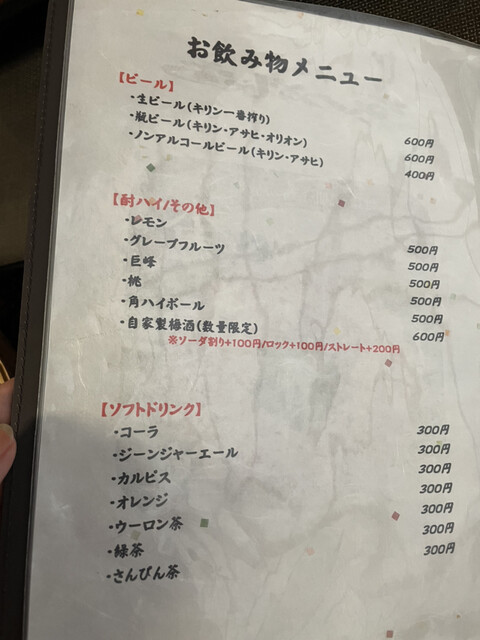 お飲み物メニュー
【ビール】
・生ビール(キリン一番搾り) 600円
・瓶ビール(キリン・アサヒ・オリオン) 600円
・ノンアルコールビール(キリン・アサヒ) 400円
【酎ハイ/その他】
・レモン 500円
・グレープフルーツ 500円
・巨峰 500円
・桃 500円
・角ハイボール 500円
・自家製梅酒(数量限定) 600円
※ソーダ割り+100円/ロック+100円/ストレート+200円
【ソフトドリンク】
・コーラ 300円
・ジーンジャーエール 300円
・カルピス 300円
・オレンジ 300円
・ウーロン茶 300円
・緑茶 300円
・さんぴん茶 300円